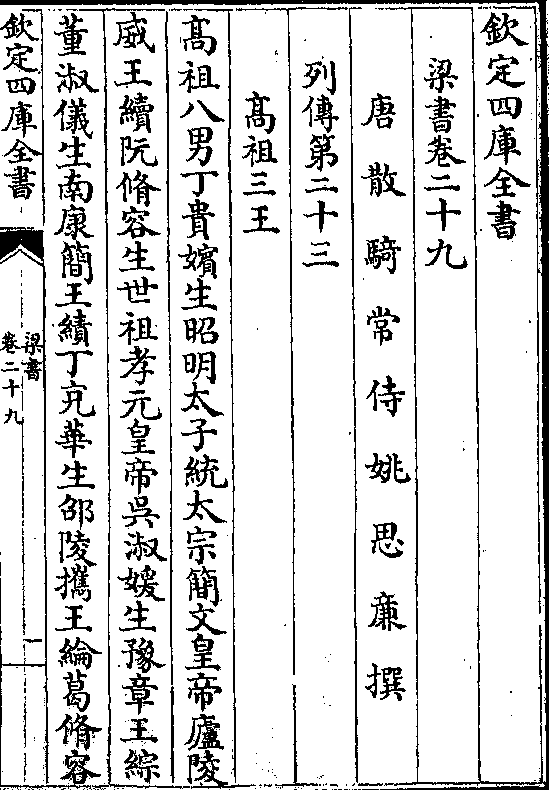 欽定四庫全書
梁書卷二十九
唐散騎常侍姚思廉撰
列傳第二十三
髙祖三王
髙祖八男丁貴嬪生昭明太子統太宗簡文皇帝廬陵
威王續阮脩容生世祖孝元皇帝吳淑媛生豫章王綜
董淑儀生南康簡王績丁充華生邵陵攜王綸葛脩容
欽定四庫全書
梁書
卷二十九
一